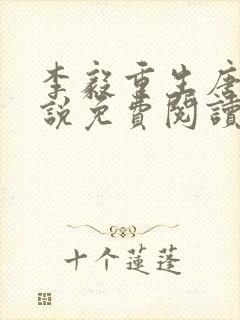 李毅重生唐
說免費閱讀
十个蓮蓬